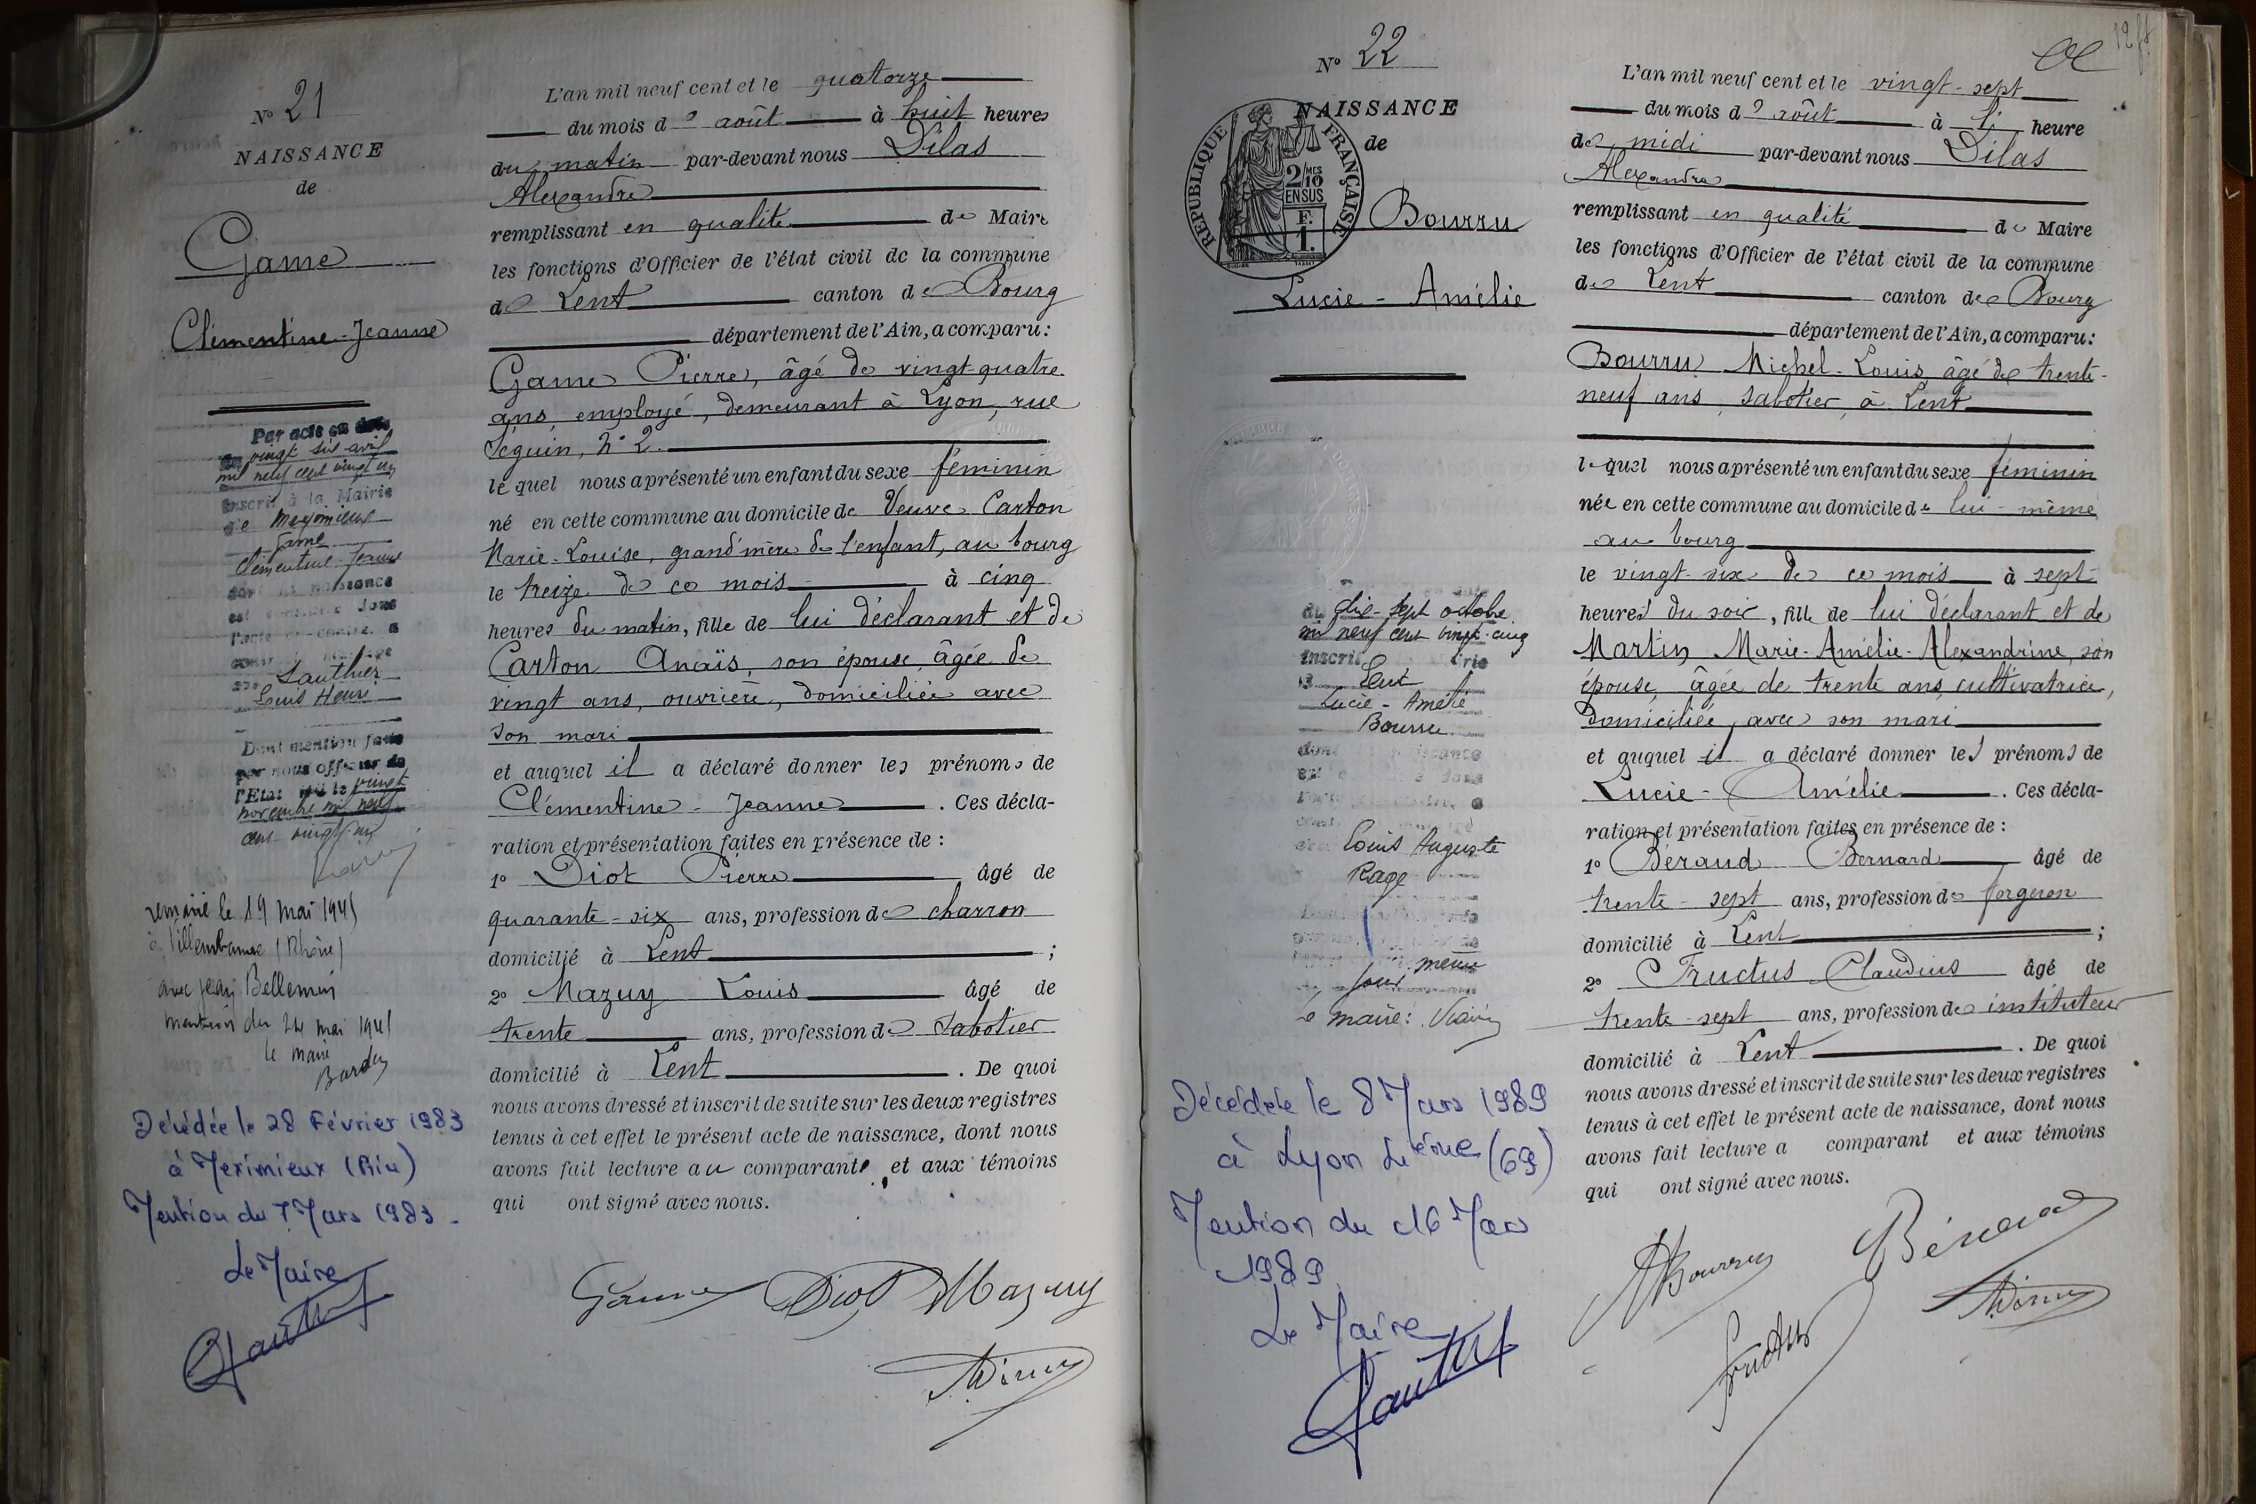 N° 21
NAISSANCE
de
Game
Clémentine-Jeanne
Par acte en date
du vingt six avril
mil neuf cent vingt un
inscrit à la Mairie
de Meximieux
Game
Clémentine Jeanne
dont la naissance
est constatée dans
l'acte ci-contre a
contracté mariage
avec Gauthier
Louis Henri
Dont mention faite
par nous officier de
l'Etat civil le vingt
novembre mil neuf
cent vingt un
remarié le 19 mai 1945
à Villeurbanne (Rhône)
avec Jean Bellemin
mention du 24 mai 1945
le maire
Décédée le 28 Février 1983
à Meximieux (Ain)
Mention du 7 Mars 1983.
Le Maire
L'an mil neuf cent et le quatorze
du mois d'août à huit heures
du matin par-devant nous Dilas
Alexandre
remplissant en qualité de Maire
les fonctions d'Officier de l'état civil de la commune
de Lent canton de Bourg
département de l'Ain, a comparu:
Game Pierre, âgé de vingt-quatre
ans, employé, demeurant à Lyon, rue
Seguin, n° 2.
lequel nous a présenté un enfant du sexe féminin
né en cette commune au domicile de Veuve Carton
Marie-Louise, grand'mère de l'enfant, au bourg
le treize de ce mois à cinq
heures du matin, fille de lui déclarant et de
Carton Anaïs, son épouse, âgée de
vingt ans, ouvrière, domiciliée avec
son mari
et auquel il a déclaré donner les prénoms de
Clémentine-Jeanne. Ces décla-
ration et présentation faites en présence de:
1° Diot Pierre âgé de
quarante-six ans, profession de charron
domicilié à Lent;
2° Mazuy Louis âgé de
trente ans, profession de sabotier
domicilié à Lent. De quoi
nous avons dressé et inscrit de suite sur les deux registres
tenus à cet effet le présent acte de naissance, dont nous
avons fait lecture au comparant et aux témoins
qui ont signé avec nous.
Game Diot Mazuy
N° 22
NAISSANCE
de
REPUBLIQUE FRANÇAISE
2/10 MES
EN SUS
F.
1.
Bourru
Lucie-Amélie
du dix-sept octobre
mil neuf cent vingt-cinq
inscrit
à Lent
Lucie-Amélie
Bourru
Louis Auguste
Rage
jour même
Le maire:
Décédée le 8 Mars 1989
à Lyon 4ème (69)
Mention du 16 Mars
1989
Le Maire
L'an mil neuf cent et le vingt-sept
du mois d'août à l' heure
de midi par-devant nous Dilas
Alexandre
remplissant en qualité de Maire
les fonctions d'Officier de l'état civil de la commune
de Lent canton de Bourg
département de l'Ain, a comparu:
Bourru Michel-Louis âgé de trente-
neuf ans, sabotier, à Lent
lequel nous a présenté un enfant du sexe féminin
née en cette commune au domicile de lui-même
au bourg
le vingt-six de ce mois à sept
heures du soir, fille de lui déclarant et de
Martin Marie-Amélie-Alexandrine, son
épouse, âgée de trente ans, cultivatrice,
domiciliée avec son mari
et auquel il a déclaré donner les prénoms de
Lucie-Amélie. Ces décla-
ration et présentation faites en présence de:
1° Béraud Bernard âgé de
trente-sept ans, profession de forgeron
domicilié à Lent;
2° Fructus Claudius âgé de
trente-sept ans, profession de instituteur
domicilié à Lent. De quoi
nous avons dressé et inscrit de suite sur les deux registres
tenus à cet effet le présent acte de naissance, dont nous
avons fait lecture a comparant et aux témoins
qui ont signé avec nous.
Bourru Béraud
Fructus